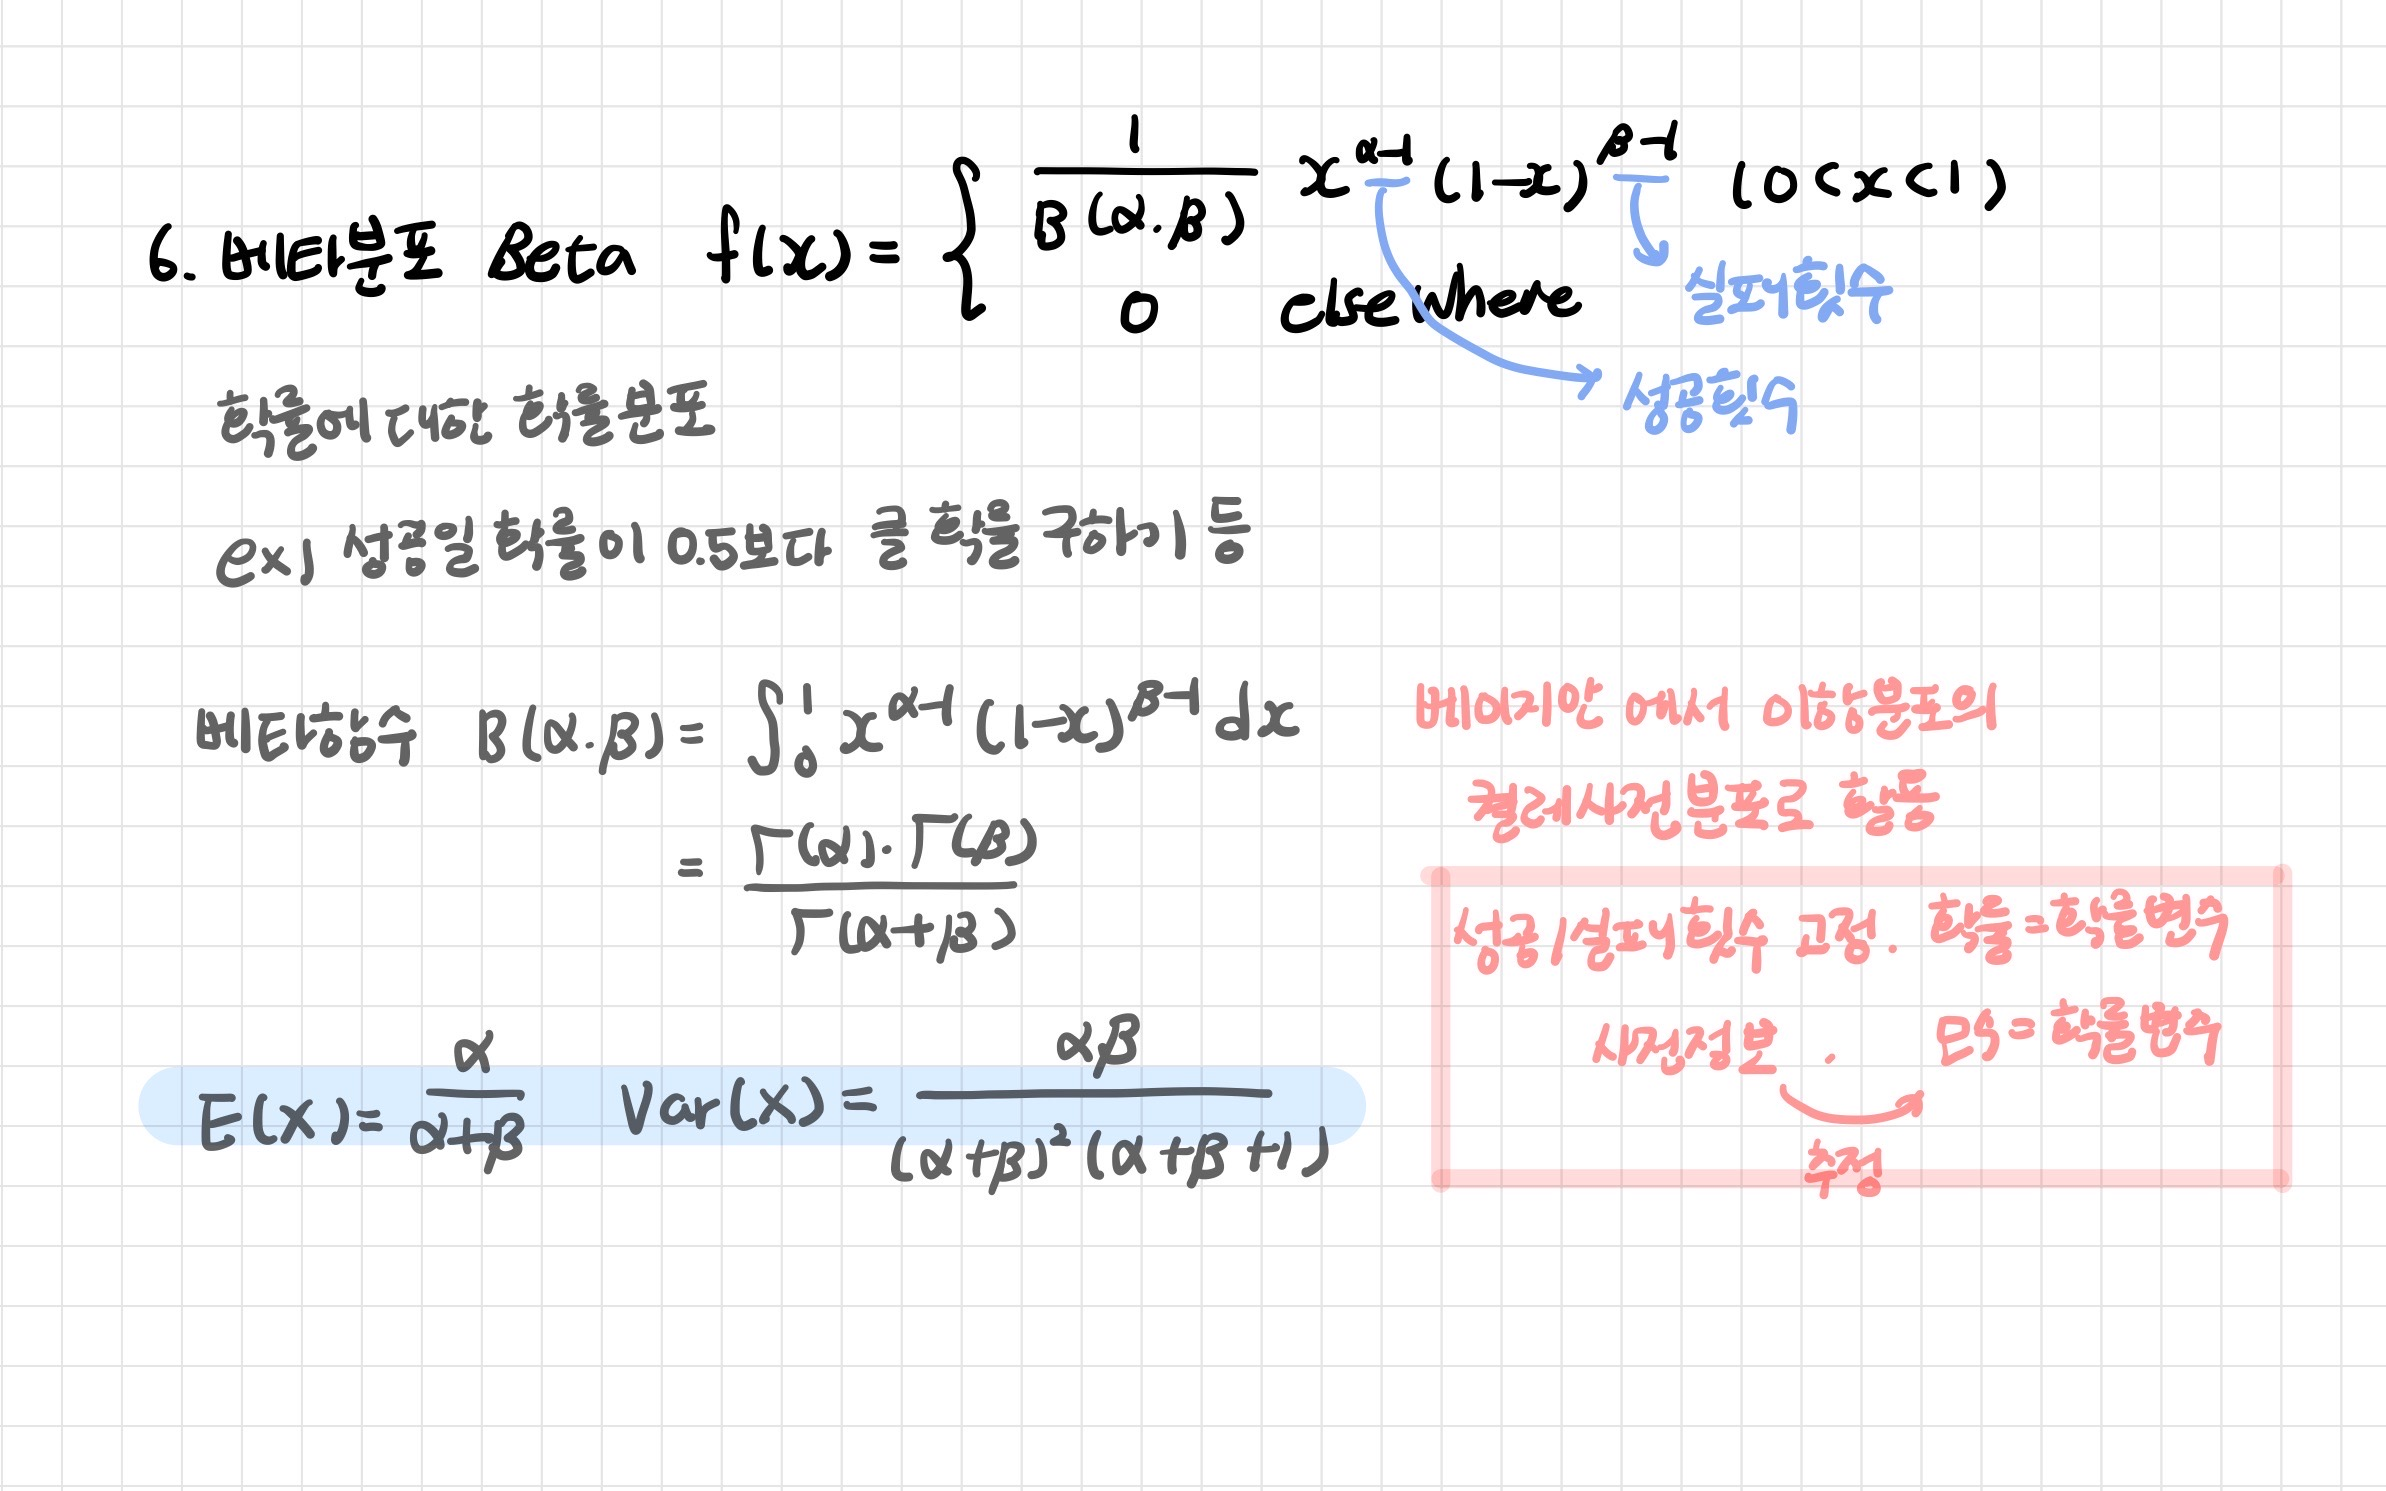 6. 베타분포 Beta f(x) = { 1/B(α.β) x^(α-1) (1-x)^(β-1) (0<x<1)
0 elsewhere
실패횟수
성공횟수
확률에 대한 확률분포
ex) 성공일 확률이 0.5보다 클 확률 구하기 등
베타함수 B(α.β) = ∫₀¹ x^(α-1) (1-x)^(β-1) dx
= Γ(α)·Γ(β) / Γ(α+β)
E(X) = α/(α+β) Var(X) = αβ / (α+β)²(α+β+1)
베이지안 에서 이항분포의
켤레사전분포로 활용
성공/실패횟수 고정. 확률=확률변수
사전정보 . 모수=확률변수
추정